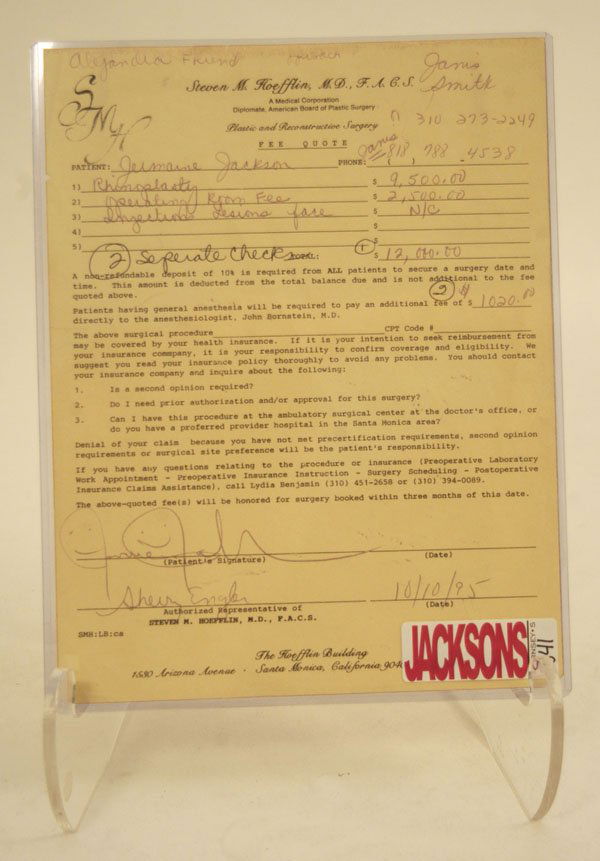 Alejandra Friend
Janis
Smith
SMH
Steven M. Hoefflin, M.D., F.A.C.S.
A Medical Corporation
Diplomate, American Board of Plastic Surgery
310 273-2249
Plastic and Reconstructive Surgery
FEE QUOTE
Janis
PATIENT: Jermaine Jackson PHONE: (818) 788-4538
1) Rhinoplasty $ 9,500.00
2) Operating Room Fee $ 2,500.00
3) Injections Lesions face $ N/C
4) $
5) $
② Seperate Check TOTAL: ① $ 12,000.00
A non-refundable deposit of 10% is required from ALL patients to secure a surgery date and
time. This amount is deducted from the total balance due and is not additional to the fee
quoted above.
② $
Patients having general anesthesia will be required to pay an additional fee of $ 1020.00
directly to the anesthesiologist, John Bornstein, M.D.
The above surgical procedure CPT Code #
may be covered by your health insurance. If it is your intention to seek reimbursement from
your insurance commpany, it is your responsibility to confirm coverage and eligibility. We
suggest you read your insurance policy thoroughly to avoid any problems. You should contact
your insurance company and inquire about the following:
1. Is a second opinion required?
2. Do I need prior authorization and/or approval for this surgery?
3. Can I have this procedure at the ambulatory surgical center at the doctor's office, or
do you have a preferred provider hospital in the Santa Monica area?
Denial of your claim because you have not met precertification requirements, second opinion
requirements or surgical site preference will be the patient's responsibility.
If you have any questions relating to the procedure or insurance (Preoperative Laboratory
Work Appointment - Preoperative Insurance Instruction - Surgery Scheduling - Postoperative
Insurance Claims Assistance), call Lydia Benjamin (310) 451-2658 or (310) 394-0089.
The above-quoted fee(s) will be honored for surgery booked within three months of this date.
(Patient's Signature) (Date)
10/10/95
Authorized Representative of (Date)
STEVEN M. HOEFFLIN, M.D., F.A.C.S.
SMH:LB:ca
The Hoefflin Building
1530 Arizona Avenue · Santa Monica, California
JACKSONS
J41